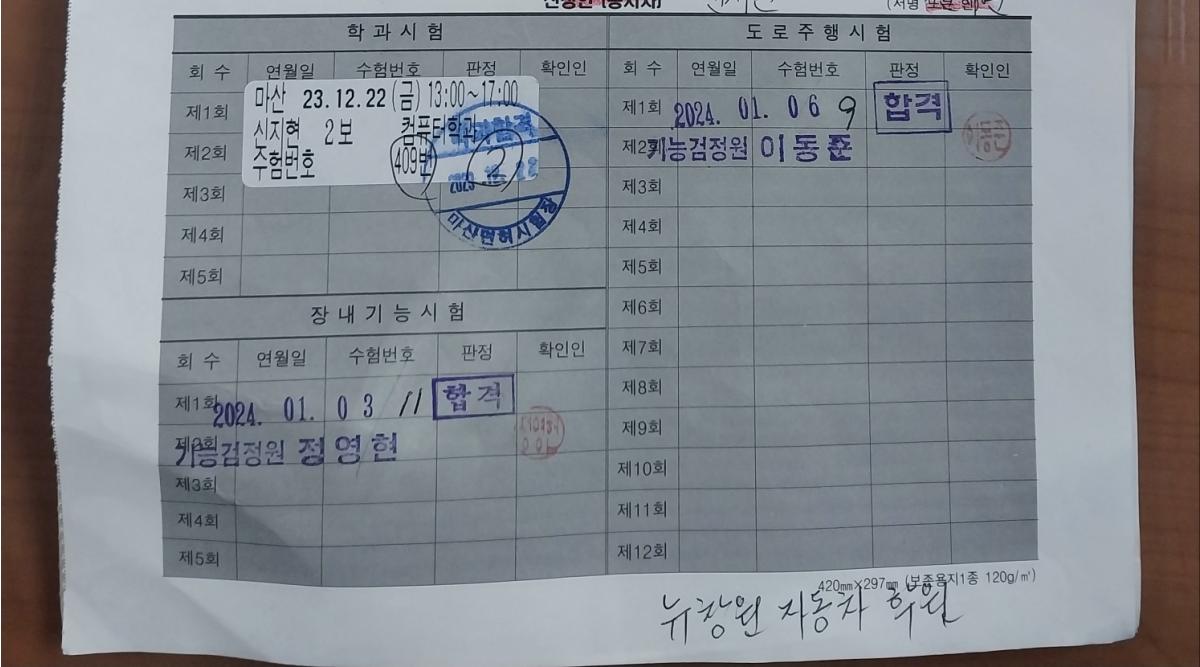 학과시험
회 수 연월일 수험번호 판정 확인인
제1회
제2회
제3회
제4회
제5회
마산 23.12.22(금) 13:00~17:00
신지현 2보 컴퓨터학과
수험번호 409번
합격
2023 12. 22
마산면허시험장
장내기능시험
회 수 연월일 수험번호 판정 확인인
제1회 2024. 01. 03 11 합격
기능검정원 정영현
제3회
제4회
제5회
도로주행시험
회 수 연월일 수험번호 판정 확인인
제1회 2024. 01. 06 9 합격
제2회 기능검정원 이동준
제3회
제4회
제5회
제6회
제7회
제8회
제9회
제10회
제11회
제12회
420㎜×297㎜ (보존용지1종 120g/㎡)
뉴창원 자동차 학원